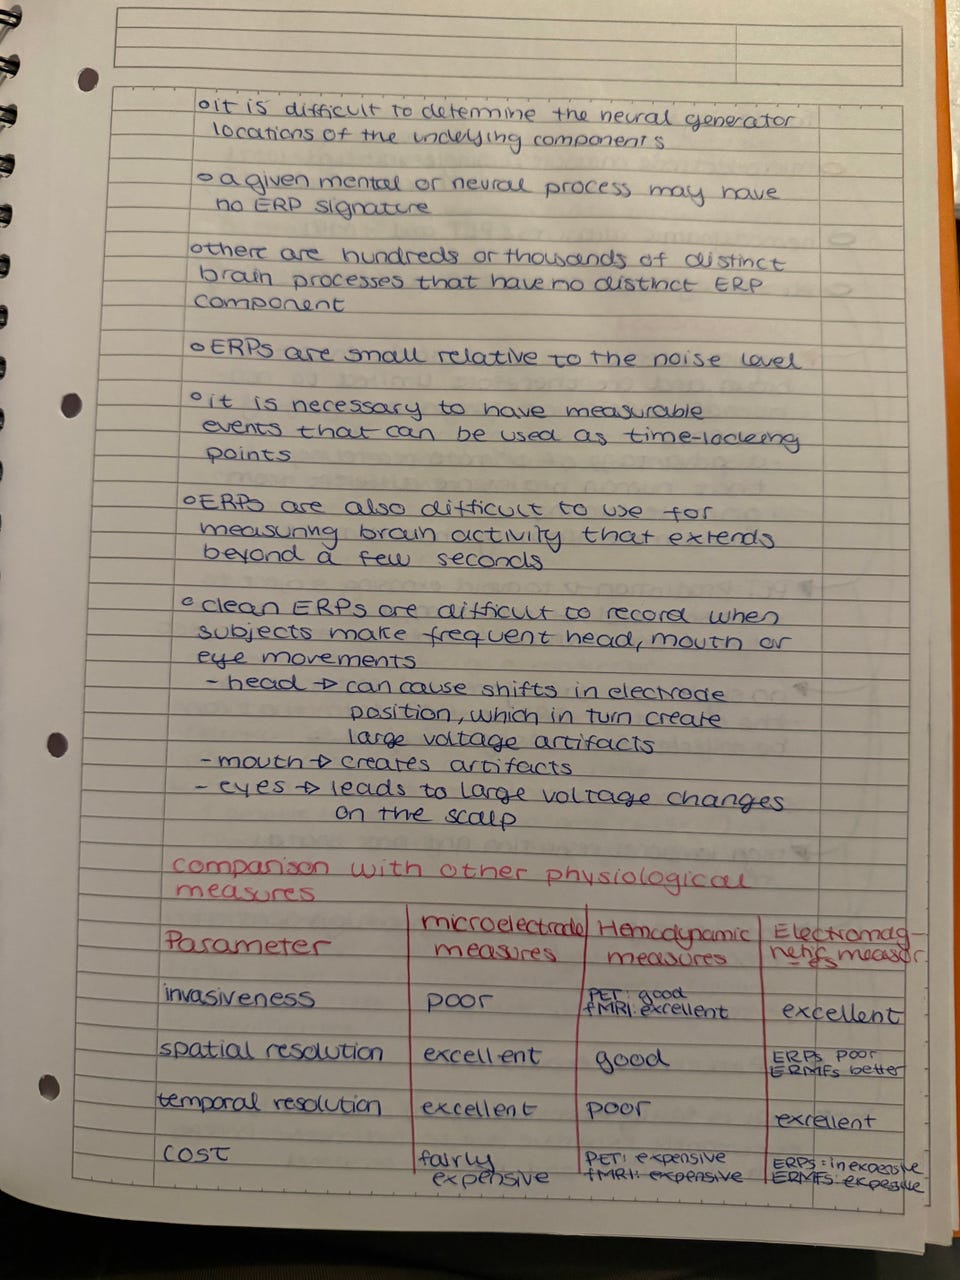 o it is difficult to determine the neural generator
locations of the underlying components
o a given mental or neural process may have
no ERP signature
o there are hundreds or thousands of distinct
brain processes that have no distinct ERP
component
o ERPs are small relative to the noise level
o it is necessary to have measurable
events that can be used as time-locking
points
o ERPs are also difficult to use for
measuring brain activity that extends
beyond a few seconds
o clean ERPs are difficult to record when
subjects make frequent head, mouth or
eye movements
- head → can cause shifts in electrode
position, which in turn create
large voltage artifacts
- mouth → creates artifacts
- eyes → leads to large voltage changes
on the scalp
comparison with other physiological
measures
Parameter | microelectrode measures | Hemodynamic measures | Electromagnetic measur.
invasiveness | poor | PET: good fMRI: excellent | excellent
spatial resolution | excellent | good | ERPs poor ERMFs better
temporal resolution | excellent | poor | excellent
cost | fairly expensive | PET: expensive fMRI: expensive | ERPs: inexpensive ERMFs: expensive